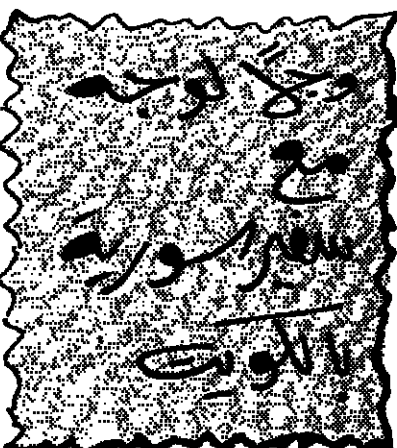 وجهًا لوجه
مع
سفير سورية
بالكويت